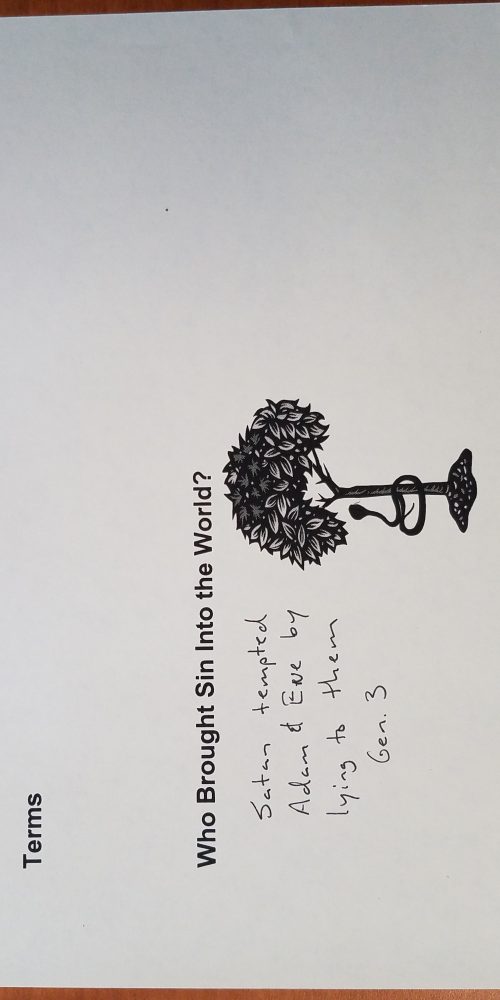 Terms
Who Brought Sin Into the World?
Satan tempted
Adam & Eve by
lying to them
Gen. 3